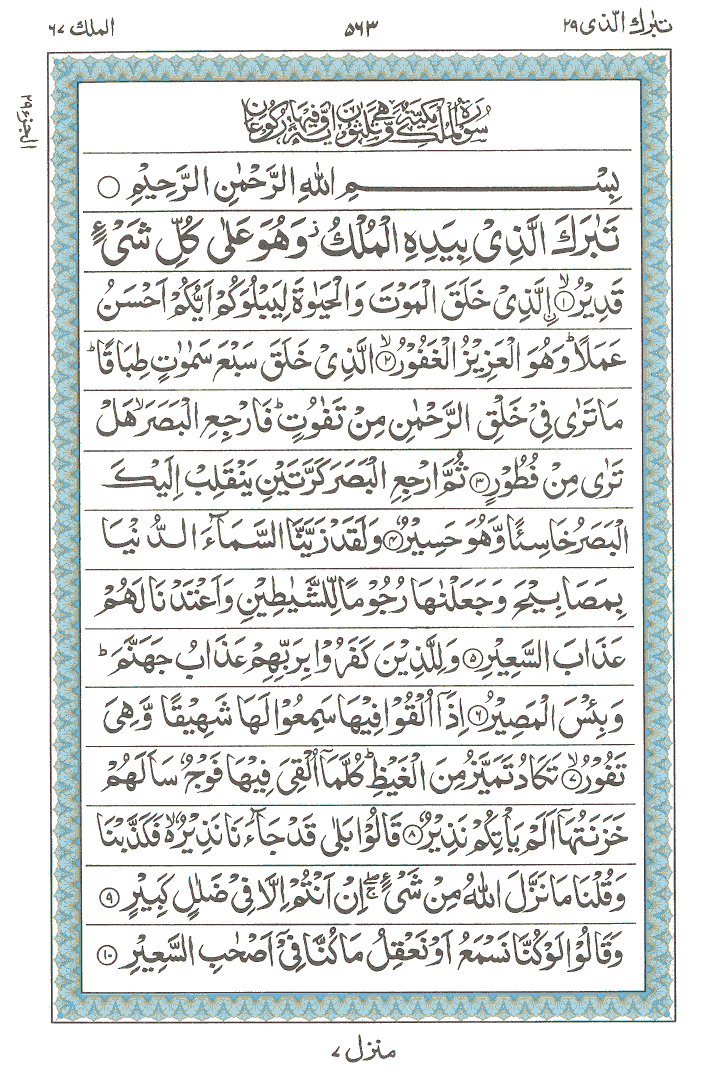 تبٰرك الّذی ۲۹
۵۶۳
الملك ۶۷
الجزء ۲۹
سُوْرَةُ الْمُلْكِ مَكِّيَّةٌ وَّهِيَ ثَلٰثُوْنَ اٰيَةً وَّفِيْهَا رُكُوْعَانِ
بِسْمِ اللهِ الرَّحْمٰنِ الرَّحِيْمِ
تَبٰرَكَ الَّذِیْ بِيَدِهِ الْمُلْكُ ز وَهُوَ عَلٰی كُلِّ شَیْءٍ
قَدِيْرُ ۙ﴿۱﴾ ۣالَّذِیْ خَلَقَ الْمَوْتَ وَالْحَيٰوةَ لِيَبْلُوَكُمْ اَيُّكُمْ اَحْسَنُ
عَمَلًا ؕ وَهُوَ الْعَزِيْزُ الْغَفُوْرُ ۙ﴿۲﴾ الَّذِیْ خَلَقَ سَبْعَ سَمٰوٰتٍ طِبَاقًا ؕ
مَا تَرٰی فِیْ خَلْقِ الرَّحْمٰنِ مِنْ تَفٰوُتٍ ؕ فَارْجِعِ الْبَصَرَ ۙ هَلْ
تَرٰی مِنْ فُطُوْرٍ ﴿۳﴾ ثُمَّ ارْجِعِ الْبَصَرَ كَرَّتَيْنِ يَنْقَلِبْ اِلَيْكَ
الْبَصَرُ خَاسِئًا وَّهُوَ حَسِيْرٌ ﴿۴﴾ وَلَقَدْ زَيَّنَّا السَّمَآءَ الدُّنْيَا
بِمَصَابِيْحَ وَجَعَلْنٰهَا رُجُوْمًا لِّلشَّيٰطِيْنِ وَاَعْتَدْنَا لَهُمْ
عَذَابَ السَّعِيْرِ ﴿۵﴾ وَلِلَّذِيْنَ كَفَرُوْا بِرَبِّهِمْ عَذَابُ جَهَنَّمَ ؕ
وَبِئْسَ الْمَصِيْرُ ﴿۶﴾ اِذَآ اُلْقُوْا فِيْهَا سَمِعُوْا لَهَا شَهِيْقًا وَّهِیَ
تَفُوْرُ ۙ﴿۷﴾ تَكَادُ تَمَيَّزُ مِنَ الْغَيْظِ ؕ كُلَّمَآ اُلْقِیَ فِيْهَا فَوْجٌ سَاَلَهُمْ
خَزَنَتُهَآ اَلَمْ يَاْتِكُمْ نَذِيْرٌ ﴿۸﴾ قَالُوْا بَلٰی قَدْ جَآءَنَا نَذِيْرٌ ۙ۬ فَكَذَّبْنَا
وَقُلْنَا مَا نَزَّلَ اللهُ مِنْ شَیْءٍ ۖۚ اِنْ اَنْتُمْ اِلَّا فِیْ ضَلٰلٍ كَبِيْرٍ ﴿۹﴾
وَقَالُوْا لَوْ كُنَّا نَسْمَعُ اَوْ نَعْقِلُ مَا كُنَّا فِیْۤ اَصْحٰبِ السَّعِيْرِ ﴿۱۰﴾
منزل ۷